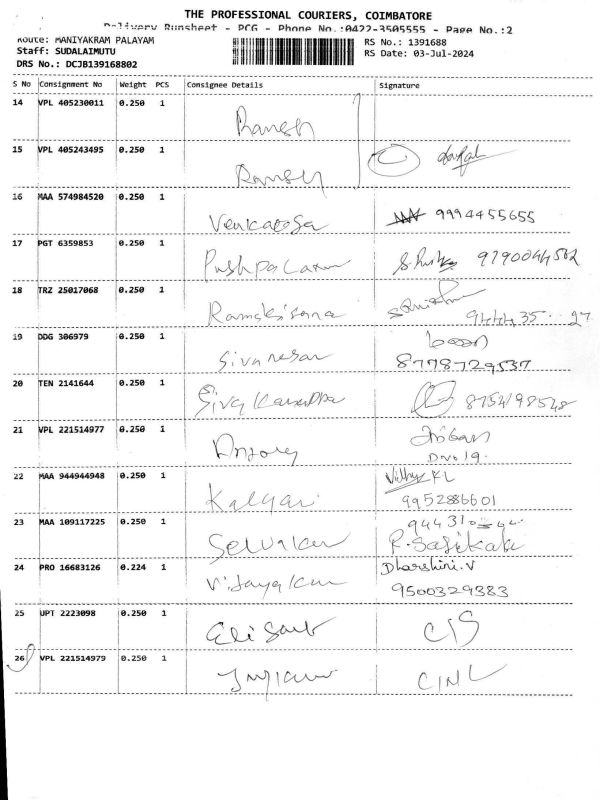 THE PROFESSIONAL COURIERS, COIMBATORE
Delivery Runsheet - PCG - Phone No.:0422-3505555 - Page No.:2
Route: MANIYAKRAM PALAYAM
RS No.: 1391688
Staff: SUDALAIMUTU
RS Date: 03-Jul-2024
DRS No.: DCJB139168802
S No Consignment No Weight PCS Consignee Details Signature
14 VPL 405230011 0.250 1 Ramesh
15 VPL 405243495 0.250 1 Ramesh
16 MAA 574984520 0.250 1 Venkatesa 9994455655
17 PGT 6359853 0.250 1 Pushpa Laxm 9790044502
18 TRZ 25017068 0.250 1 9444 35 27
19 DDG 306979 0.250 1 Sivanesan 8778729537
20 TEN 2141644 0.250 1 Siva 8754198548
21 VPL 221514977 0.250 1 Antony
22 MAA 944944948 0.250 1 Kalyani
9952886601
23 MAA 109117225 0.250 1 Selvakum
24 PRO 16683126 0.224 1 Vijayakum Dharshini.V
9500329383
25 UPT 2223098 0.250 1
26 VPL 221514979 0.250 1